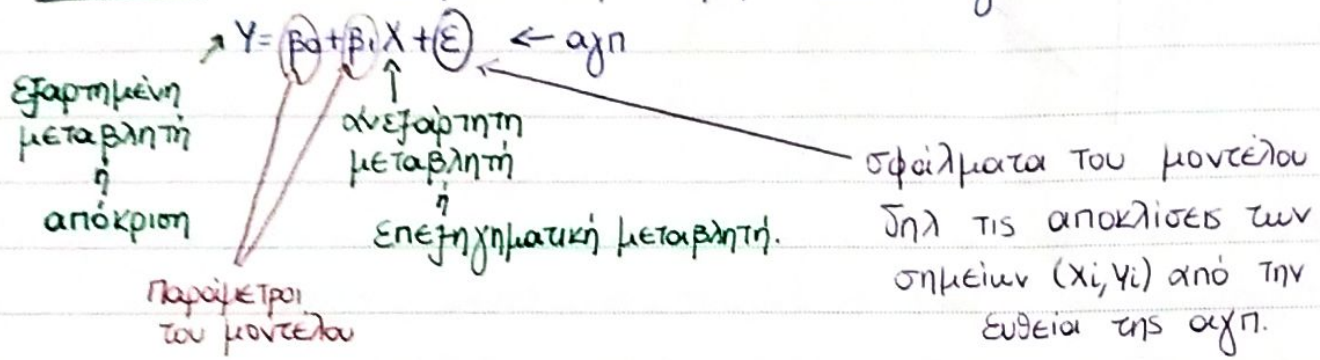 Y = β0 + β1 X + ε ← αγπ
εξαρτημένη
μεταβλητή
ή
απόκριση
ανεξάρτητη
μεταβλητή
ή
επεξηγηματική μεταβλητή.
Παράμετροι
του μοντέλου
σφάλματα του μοντέλου
δηλ τις αποκλίσεις των
σημείων (Xi, Yi) από την
ευθεία της αγπ.